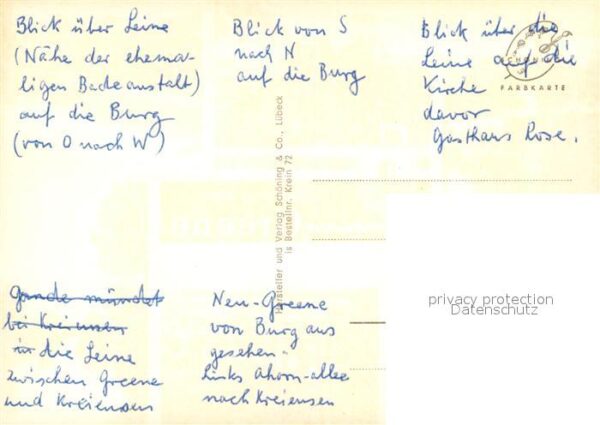 Blick über Leine
(Nähe der ehema-
ligen Badeanstalt)
auf die Burg
(von O nach W)
Blick von S
nach N
auf die Burg
Blick über die
Leine auf die
Kirche
davor
Gasthaus Rose.
SCHÖNING
FARBKARTE
Hersteller und Verlag Schöning & Co., Lübeck
is Bestellnr. Krein 72
Gande mündet
bei Kreiensen
in die Leine
zwischen Greene
und Kreiensen
Neu-Greene
von Burg aus
gesehen -
links Ahorn-allee
nach Kreiensen
privacy protection
Datenschutz